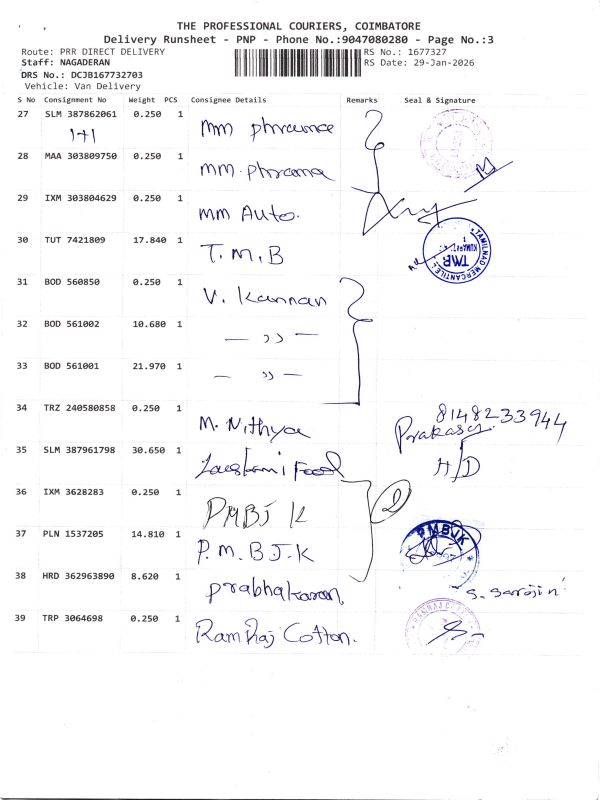 THE PROFESSIONAL COURIERS, COIMBATORE
Delivery Runsheet - PNP - Phone No.:9047080280 - Page No.:3
Route: PRR DIRECT DELIVERY RS No.: 1677327
Staff: NAGADERAN RS Date: 29-Jan-2026
DRS No.: DCJB167732703
Vehicle: Van Delivery
S No Consignment No Weight PCS Consignee Details Remarks Seal & Signature
27 SLM 387862061 0.250 1 mm phrauma
1+1
28 MAA 303809750 0.250 1 mm.phrama
29 IXM 303804629 0.250 1 mm Auto.
30 TUT 7421809 17.840 1 T.M.B
TAMILNAD MERCANTILE
TMB
31 BOD 560850 0.250 1 V. Kannan
32 BOD 561002 10.680 1 — ,, —
33 BOD 561001 21.970 1 — ,, —
34 TRZ 240580858 0.250 1 M. Nithya
8148233944
Prakash
35 SLM 387961798 30.650 1 Lakshmi Food H/D
36 IXM 3628283 0.250 1 PMBJK 2
37 PLN 1537205 14.810 1 P.M.B.J.K
PMBJK
38 HRD 362963890 8.620 1 prabhakaran S. Sarojini
39 TRP 3064698 0.250 1 Ram Raj Cotton.